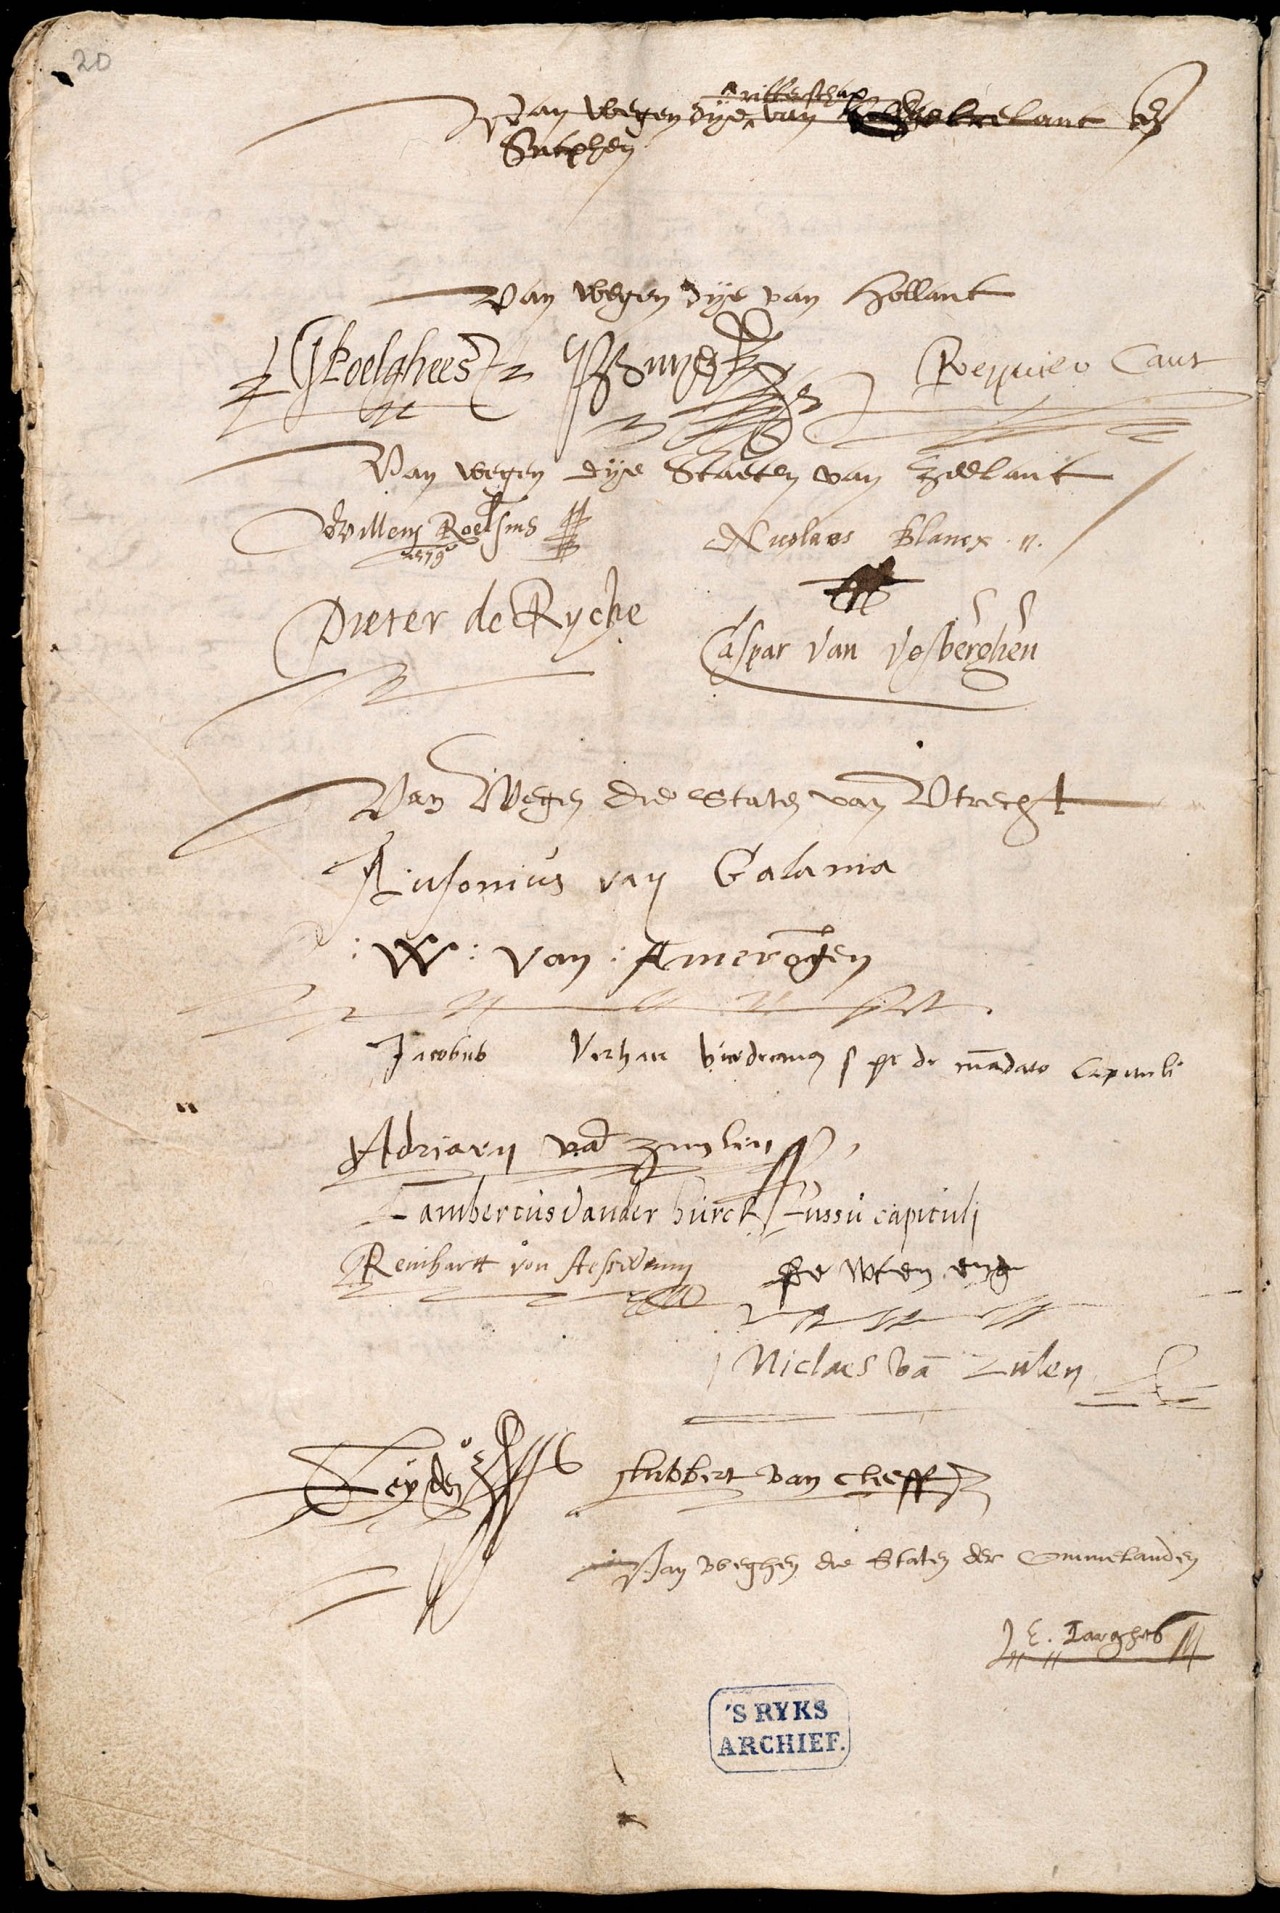 20
ritterschap
Van wegen dye van Gelrelant en
Sutphen
Van wegen dye van Hollant
G Poelghees P Buys Reynier Cant
Van wegen dye Staeten van Zeelant
Willem Roelsius Nicolaes Blancx
1579
Pieter de Rycke Caspar van Vosberghen
Van Wegen die Staten van Vtrecht
Ausonius van Galama
: W : van : Amerongen
Jacobus Verhaer vicedecanus de mandato Capituli
Adriaen van Zuylen
Lambertus vander burch Jussu capituli
Reinhart von
F de wten eng
Niclaes va Zulen
Leyden lubbert van cleeff
Van weghen die Staten der Ommelanden
E. Jarghes
'S RYKS
ARCHIEF.